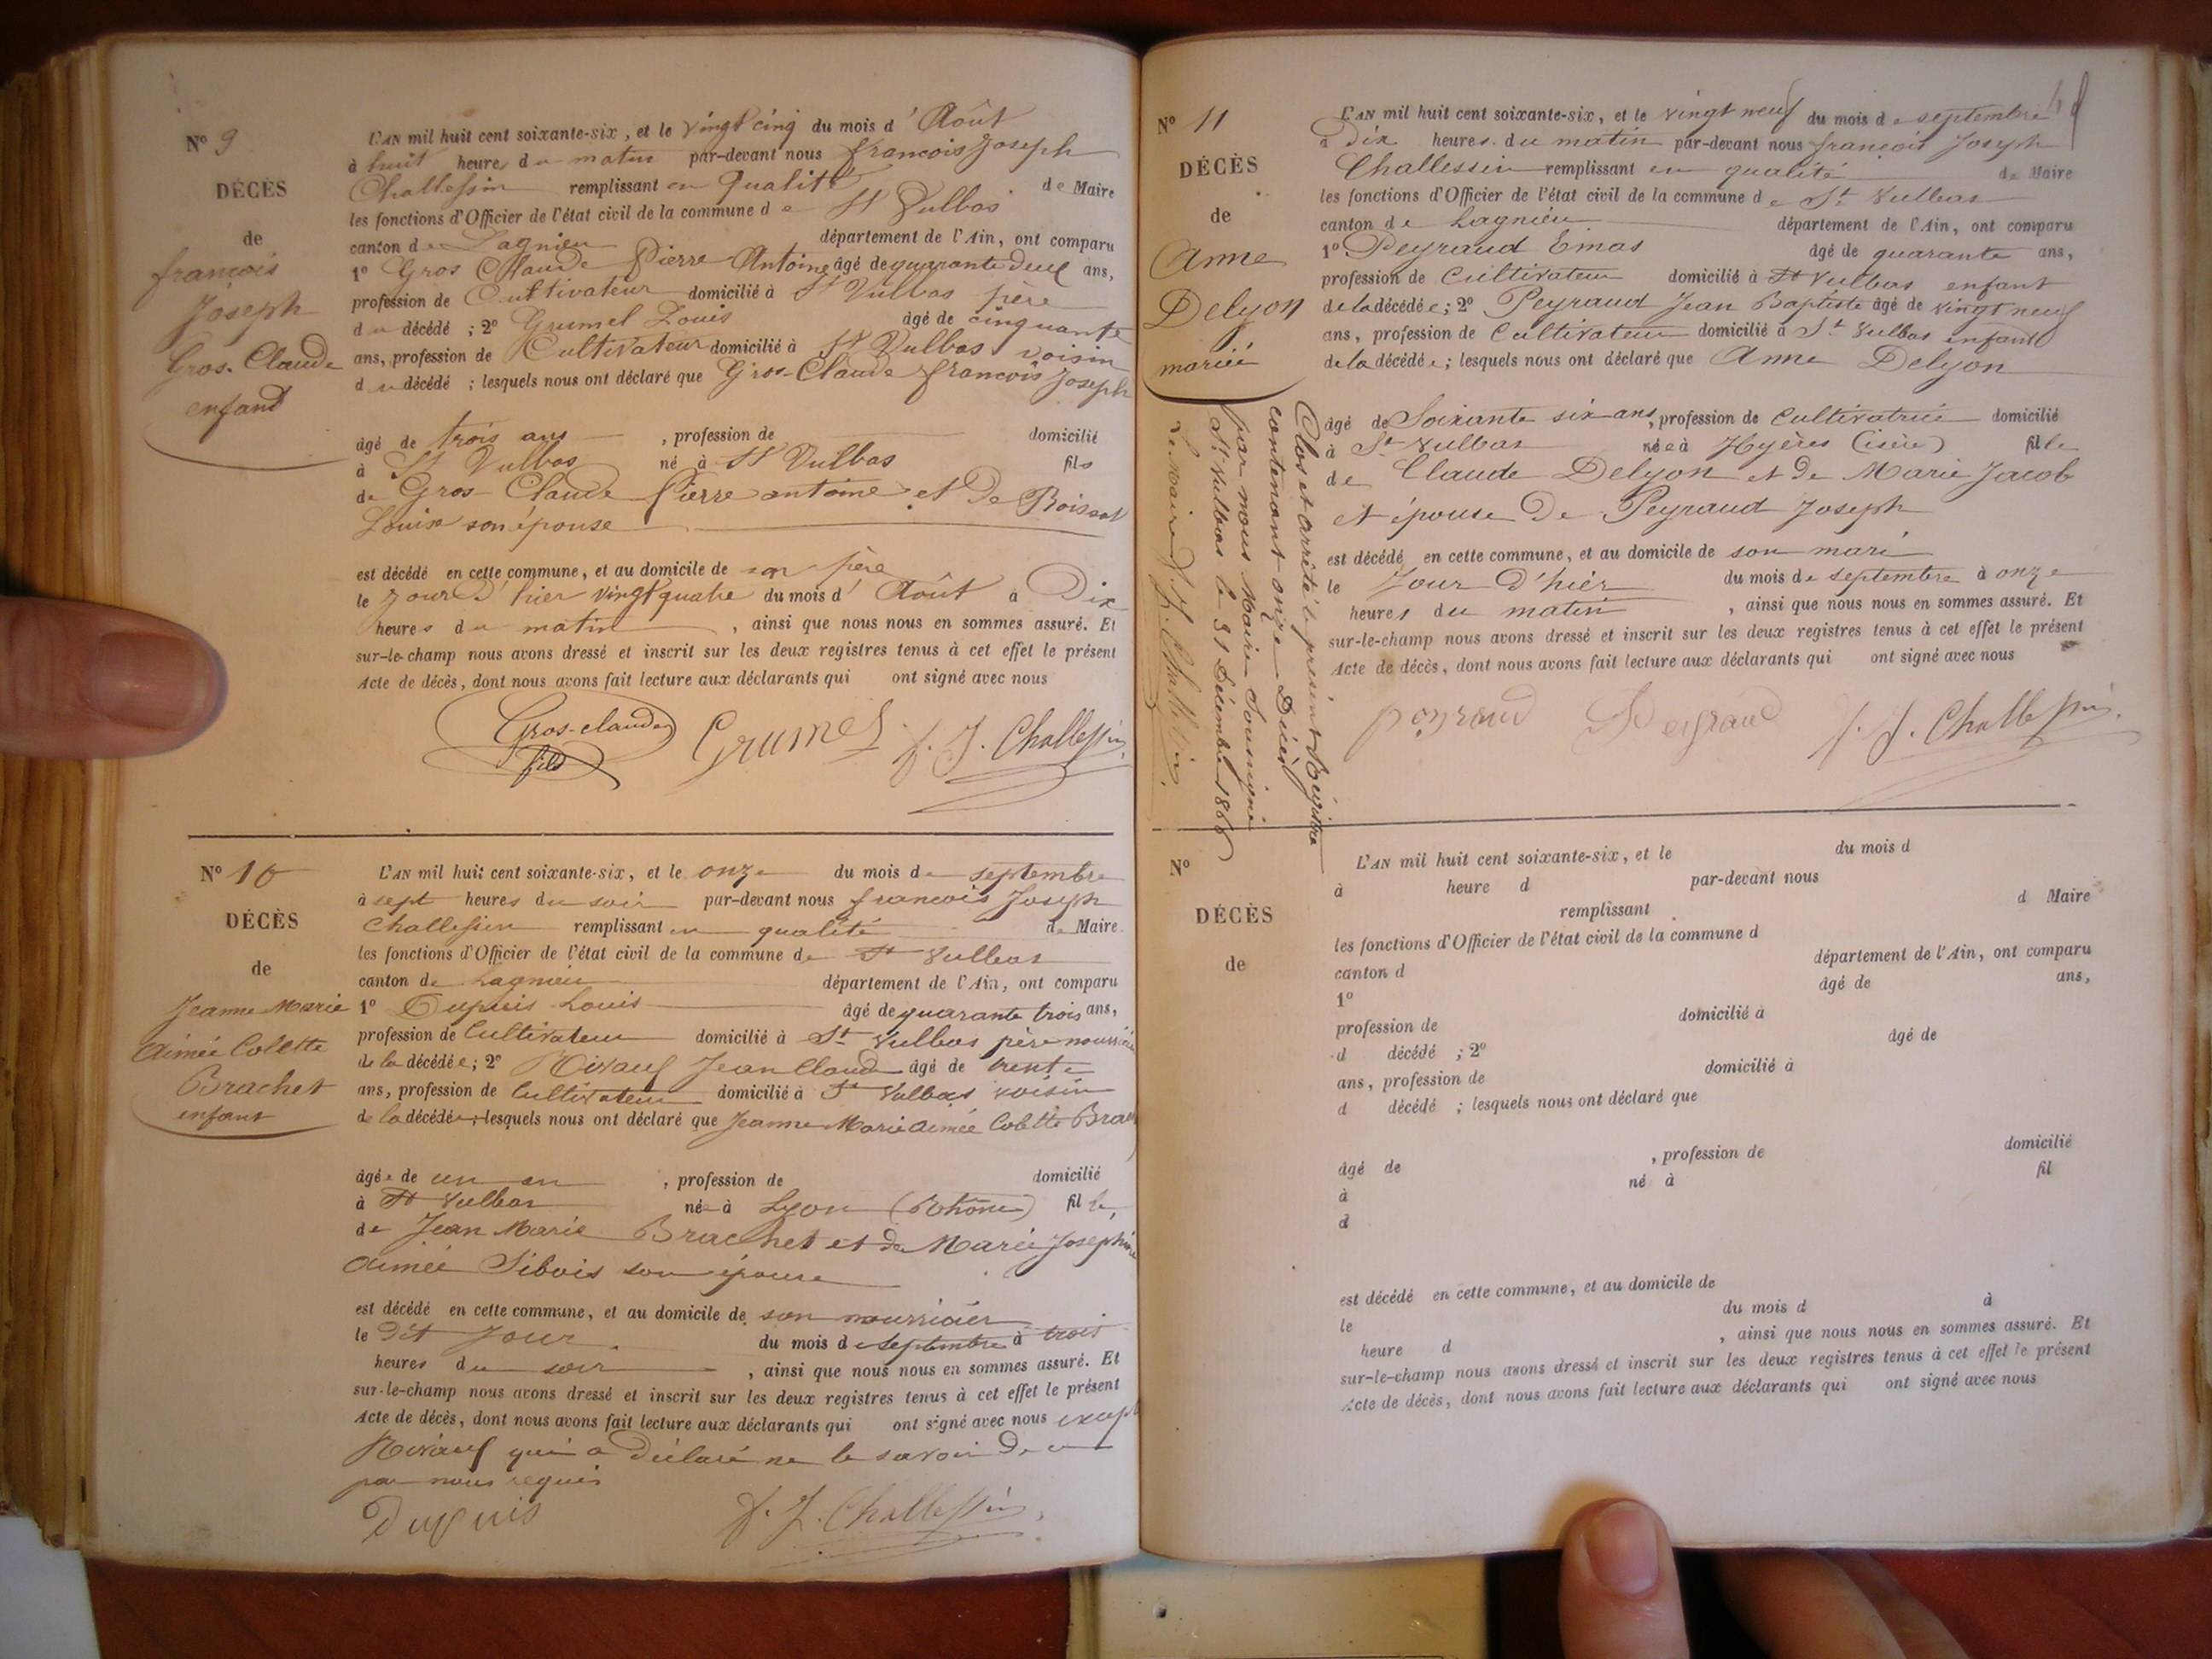 N° 9
DÉCÈS
de
francois
Joseph
Gros-Claude
enfant
L'AN mil huit cent soixante-six, et le vingt cinq du mois d'Août
à huit heures du matin par-devant nous francois Joseph
Challessin remplissant en qualité de Maire
les fonctions d'Officier de l'état civil de la commune de St Vulbas
canton de Lagnieu département de l'Ain, ont comparu
1° Gros Claude Pierre Antoine âgé de quarante deux ans,
profession de Cultivateur domicilié à St Vulbas père
du décédé ; 2° Grumel Louis âgé de cinquante
ans, profession de Cultivateur domicilié à St Vulbas voisin
du décédé ; lesquels nous ont déclaré que Gros-Claude francois Joseph
âgé de trois ans , profession de domicilié
à St Vulbas né à St Vulbas fils
de Gros-Claude Pierre antoine et de Boissat
Louise son épouse
est décédé en cette commune, et au domicile de son père
le jour d'hier vingt quatre du mois d'Août à Dix
heures du matin , ainsi que nous nous en sommes assuré. Et
sur-le-champ nous avons dressé et inscrit sur les deux registres tenus à cet effet le présent
Acte de décès, dont nous avons fait lecture aux déclarants qui ont signé avec nous
Gros-claude fils Grumel f. J. Challessin
N° 10
DÉCÈS
de
Jeanne Marie
Aimée Colette
Brachet
enfant
L'AN mil huit cent soixante-six, et le onze du mois de septembre
à sept heures du soir par-devant nous francois Joseph
Challessin remplissant en qualité de Maire
les fonctions d'Officier de l'état civil de la commune de St Vulbas
canton de Lagnieu département de l'Ain, ont comparu
1° Dupuis Louis âgé de quarante trois ans,
profession de Cultivateur domicilié à St Vulbas père nourricier
de la décédée; 2° Jean Claude âgé de trente
ans, profession de Cultivateur domicilié à St Vulbas voisin
de la décédée; lesquels nous ont déclaré que Jeanne Marie aimée Colette
âgée de un an , profession de domicilié
à St Vulbas née à Lyon (Rhône) fille,
de Jean Marie Brachet et de Marie Josephine
Aimée Sibois son épouse
est décédé en cette commune, et au domicile de son nourricier
le dit jour du mois de septembre à trois
heures du soir , ainsi que nous nous en sommes assuré. Et
sur-le-champ nous avons dressé et inscrit sur les deux registres tenus à cet effet le présent
Acte de décès, dont nous avons fait lecture aux déclarants qui ont signé avec nous excepté
qui a déclaré ne le savoir de ce
par nous requis
Dupuis f. J. Challessin
N° 11
DÉCÈS
de
Anne
Delyon
mariée
L'AN mil huit cent soixante-six, et le vingt neuf du mois de septembre
à Dix heures du matin par-devant nous françois Joseph
Challessin remplissant en qualité de Maire
les fonctions d'Officier de l'état civil de la commune de St Vulbas
canton de Lagnieu département de l'Ain, ont comparu
1° Peyraud Emas âgé de quarante ans,
profession de Cultivateur domicilié à St Vulbas enfant
de la décédée; 2° Peyraud Jean Baptiste âgé de vingt neuf
ans, profession de Cultivateur domicilié à St Vulbas enfant
de la décédée; lesquels nous ont déclaré que Anne Delyon
âgé de Soixante six ans, profession de Cultivatrice domicilié
à St Vulbas née à Hyères (isère) fille
de Claude Delyon et de Marie Jacob
et épouse de Peyraud Joseph
est décédé en cette commune, et au domicile de son mari
le jour d'hier du mois de septembre à onze
heures du matin , ainsi que nous nous en sommes assuré. Et
sur-le-champ nous avons dressé et inscrit sur les deux registres tenus à cet effet le présent
Acte de décès, dont nous avons fait lecture aux déclarants qui ont signé avec nous
peyraud Peyraud f. J. Challessin
Clos et arrêté le présent Régistre
contenant onze Décès
par nous Maire Soussigné
St Vulbas le 31 Décembre 1866
Le Maire f. J. Challessin
N°
DÉCÈS
de
L'AN mil huit cent soixante-six, et le du mois d
à heure d par-devant nous
remplissant d Maire
les fonctions d'Officier de l'état civil de la commune d
canton d département de l'Ain, ont comparu
1° âgé de ans,
profession de domicilié à
d décédé ; 2° âgé de
ans, profession de domicilié à
d décédé ; lesquels nous ont déclaré que
âgé de , profession de domicilié
à né à fil
d
est décédé en cette commune, et au domicile de
le du mois d à
heure d , ainsi que nous nous en sommes assuré. Et
sur-le-champ nous avons dressé et inscrit sur les deux registres tenus à cet effet le présent
Acte de décès, dont nous avons fait lecture aux déclarants qui ont signé avec nous